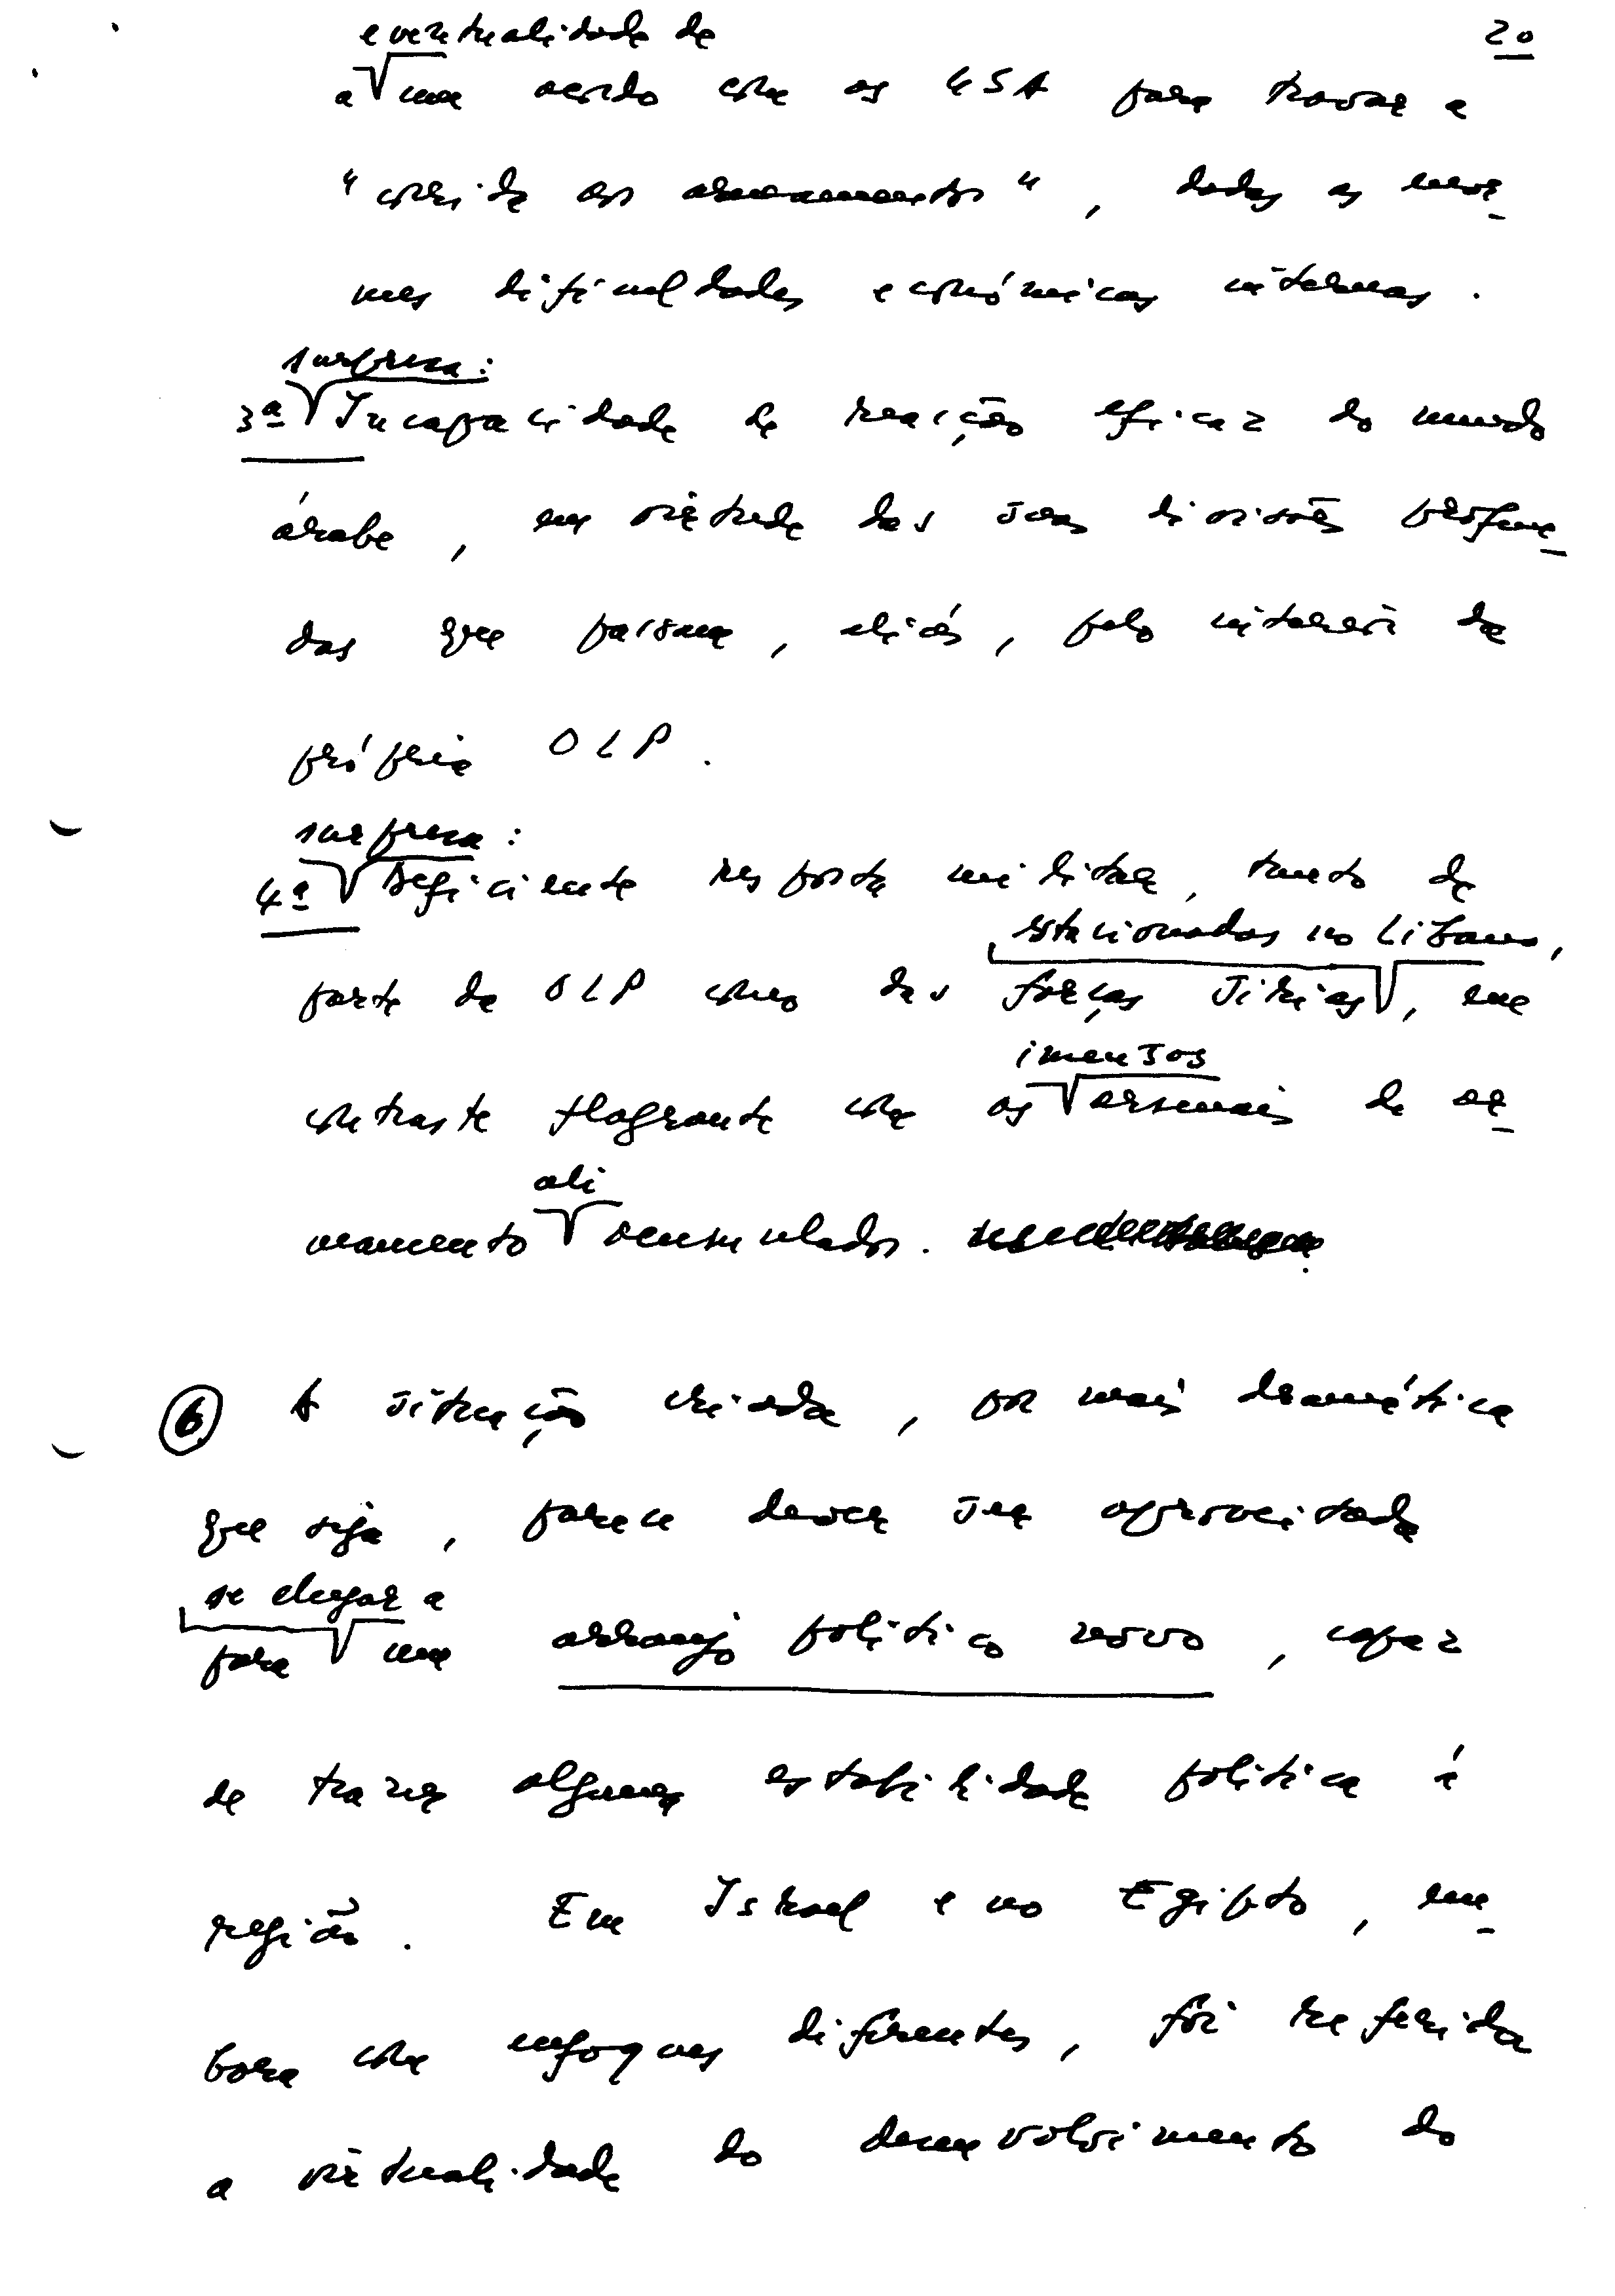 20
eventualidade de
a um acordo com os USA para travar a
"corrida aos armamentos", dadas as enor-
mes dificuldades económicas internas.
surpresa:
3ª Incapacidade de reacção eficaz do mundo
árabe, em virtude das suas divisões profun-
das que passam, aliás, pelo interior da
própria OLP.
surpresa:
4ª Deficiente resposta militar, tanto da
estacionadas no Líbano,
parte da OLP como das forças Sírias, em
imensos
contraste flagrante com os arsenais de ar-
ali
mamento acumulados.
6 A situação criada, por mais dramática
que seja, parece dever ser aproveitada
se chegar a
para um arranjo político novo, capaz
de trazer alguma estabilidade política à
região. Em Israel e no Egipto, em-
bora com enfoques diferentes, foi referida
a virtualidade do desenvolvimento do